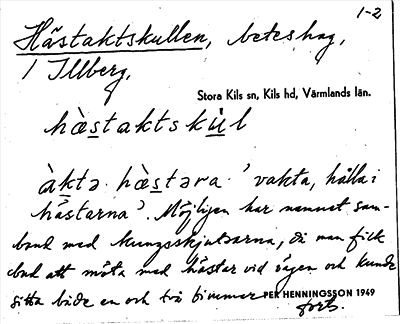 1-2
Hästaktskullen, beteshag,
/ Illberg.
Stora Kils sn, Kils hd, Värmlands län.
hàstaktskùl
àktə hàstəra ' vakta, hålla i
hästarna'. Möjligen har namnet sam-
band med kungsskjutsarna, då man fick
bud att möta med hästar vid vägen och kunde
sitta både en och två timmar
PER HENNINGSSON 1949
forts.